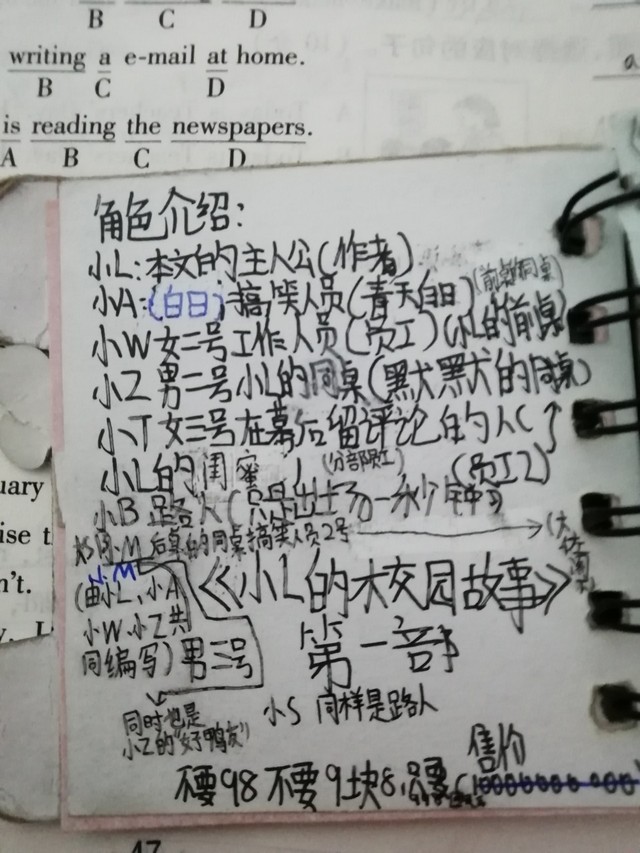 B C D
writing a e-mail at home.
B C D
is reading the newspapers.
A B C D
角色介绍:
小L:本文的主人公(作者)
小A:(白日)搞笑人员(青天白日)(前桌同桌)
小W 女二号工作人员(员工)(小L的前桌)
小Z 男二号小L的同桌(默默的同桌)
小T 女三号在幕后留评论的人(
小L的闺蜜)(分部员工)(员工2)
小B 路人(只出场一秒钟)
后桌的同桌搞笑人员2号
N.M
(由小L、小A
小W、小Z共
同编写)男三号
《小L的校园故事》
第一部
小S 同样是路人
同时也是
小Z的"好鸭友"
售价
不要98 不要9块8 只要
uary
ise t
n't.
47